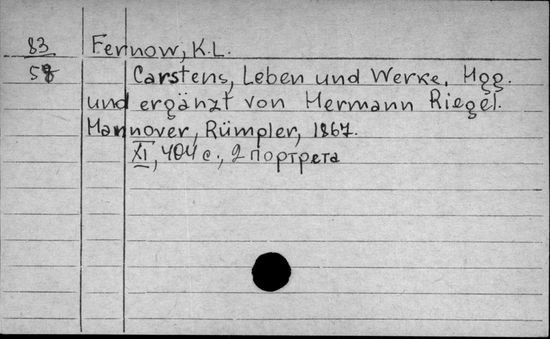 83 Fernow, K.L.
58 Carstens, Leben und Werke, Hgg.
und ergänzt von Hermann Riegel.
Hannover, Rümpler, 1867.
XI, 404 с., 2 портрета